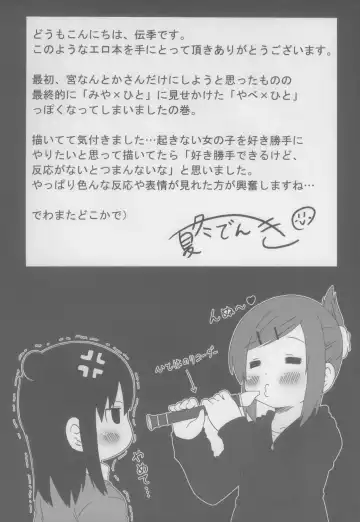 どうもこんにちは、伝季です。
このようなエロ本を手にとって頂きありがとうございます。
最初、宮なんとかさんだけにしようと思ったものの
最終的に「みや×ひと」に見せかけた「やべ×ひと」
っぽくなってしまいましたの巻。
描いてて気付きました…起きない女の子を好き勝手に
やりたいと思って描いてたら「好き勝手できるけど、
反応がないとつまんないな」と思いました。
やっぱり色んな反応や表情が見れた方が興奮しますね…
でわまたどこかで)
夏冬でんき
んぬ〜♡
のリコーダー
やめて…